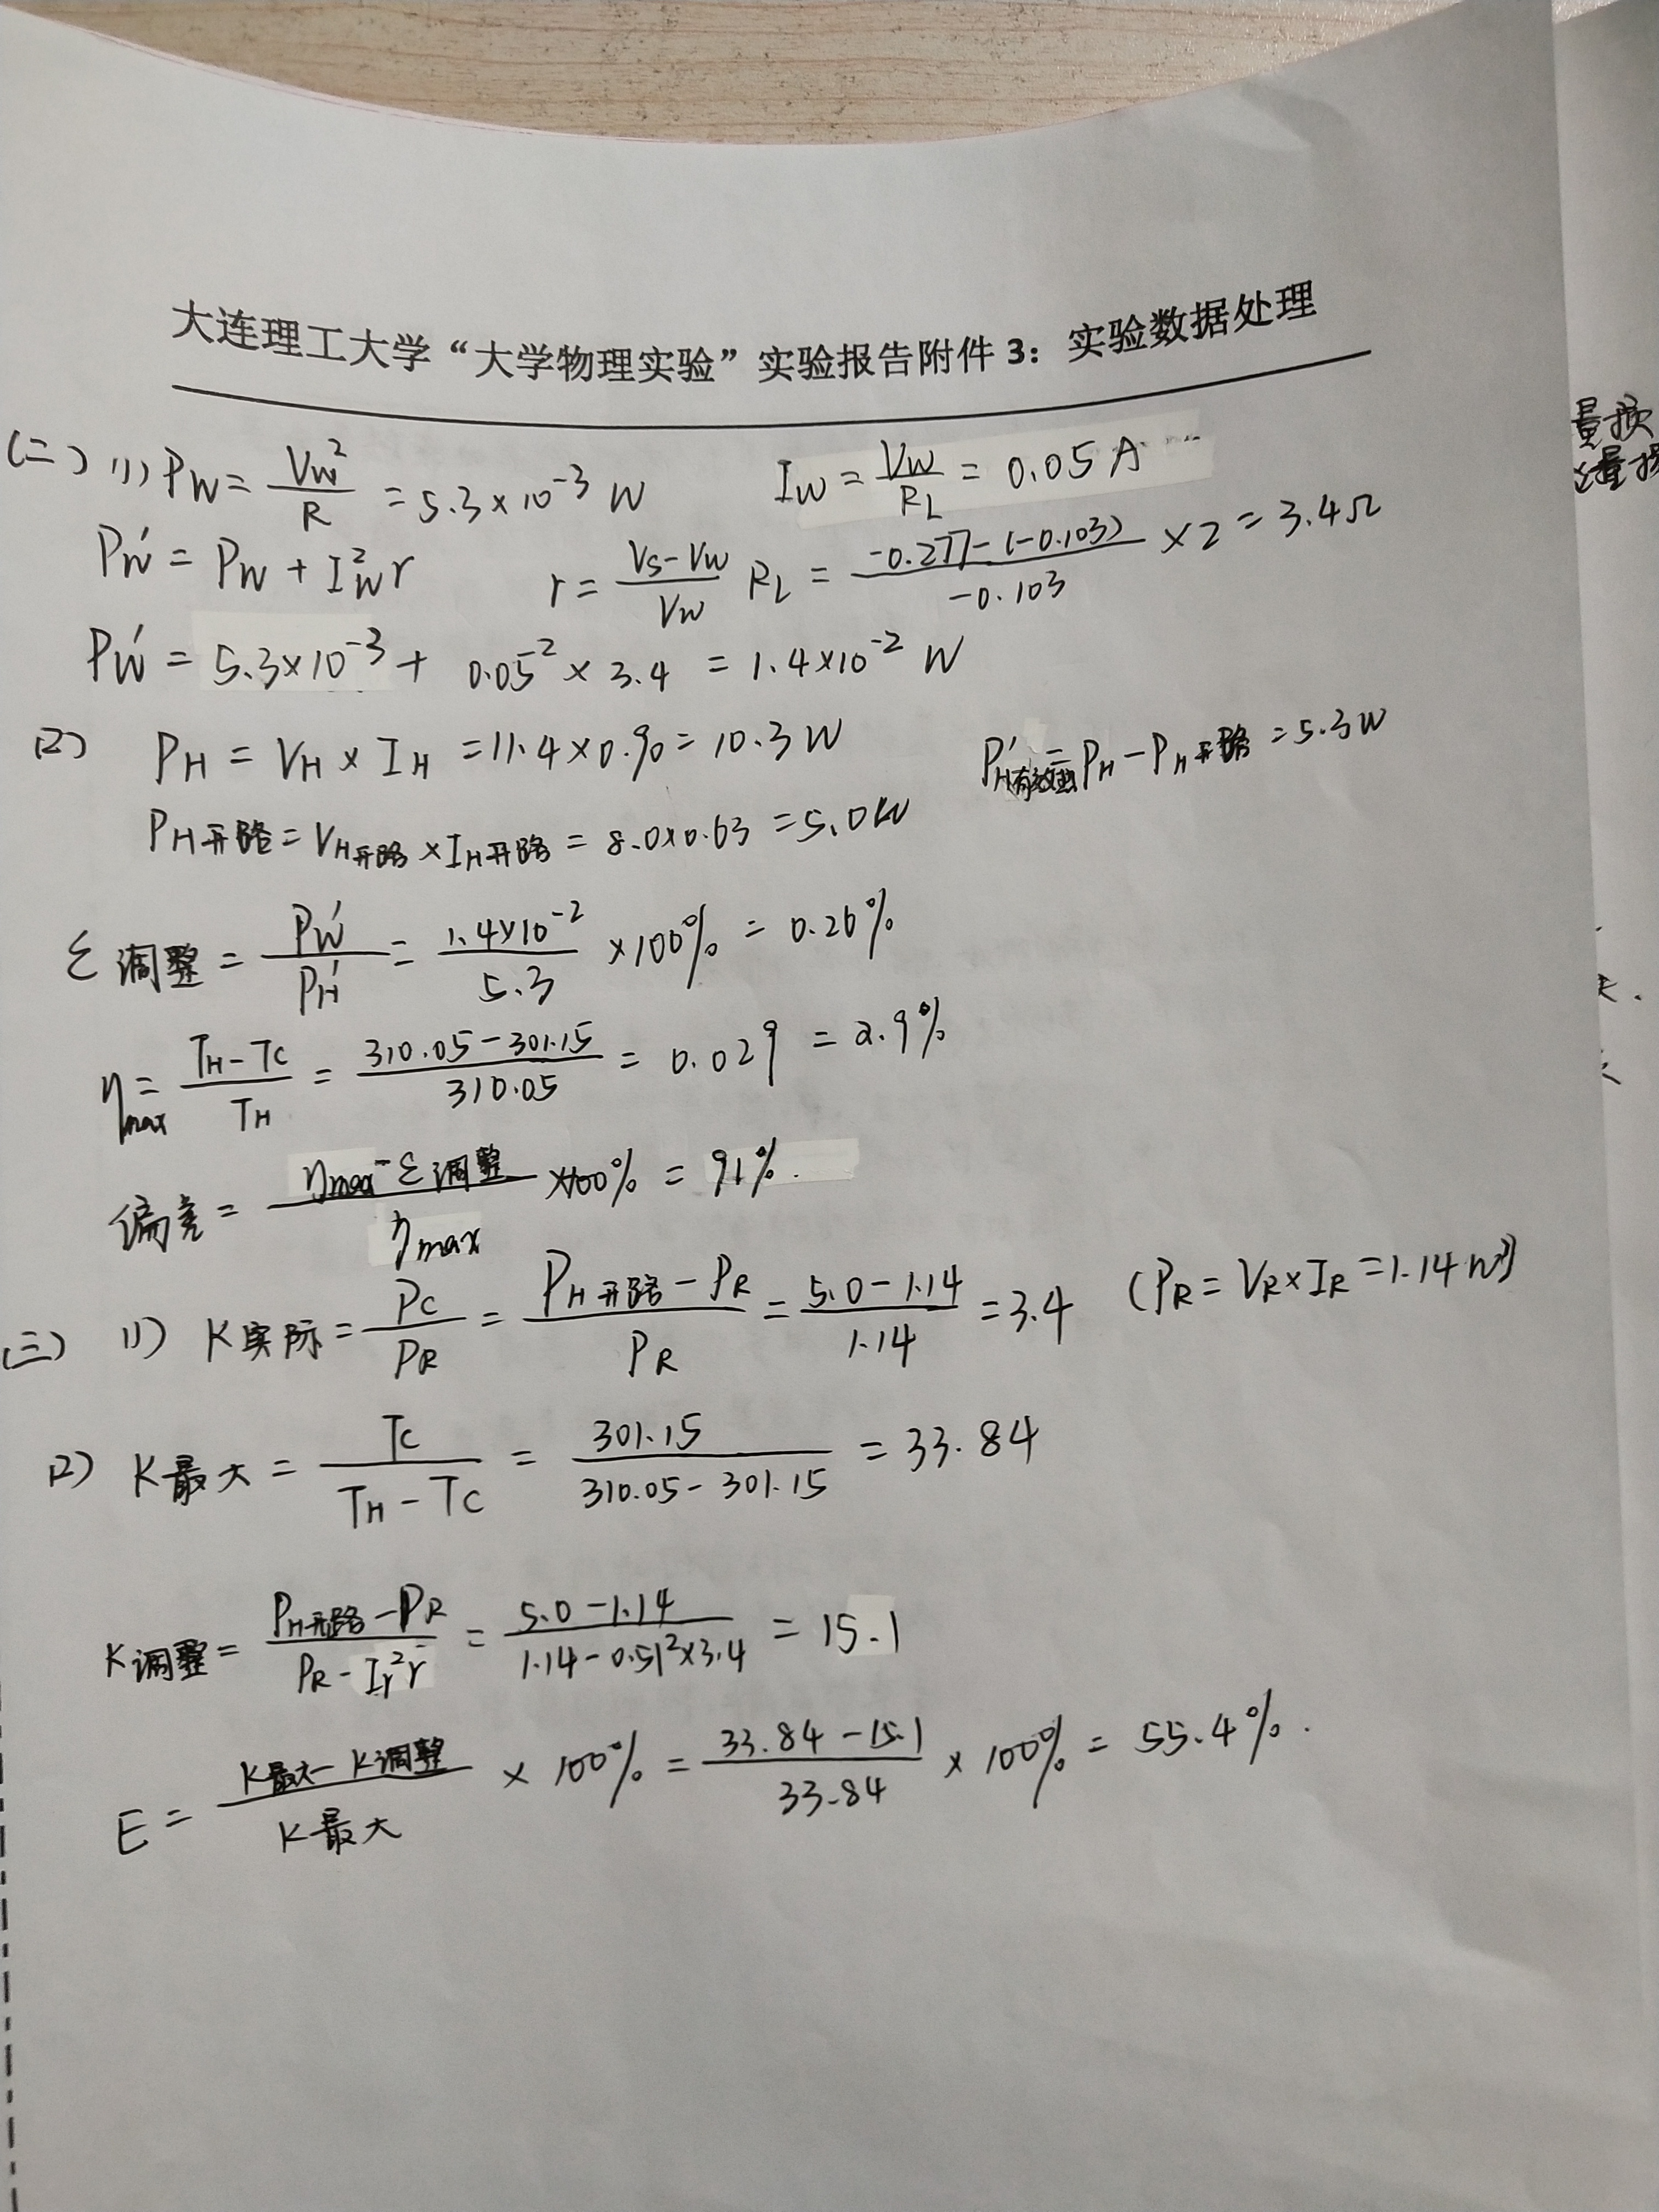 大连理工大学“大学物理实验”实验报告附件 3：实验数据处理
(二) (1) P_W = V_W²/R = 5.3×10⁻³ W I_W = V_W/R_L = 0.05 A
P_W′ = P_W + I_W² r r = (V_S−V_W)/V_W R_L = (−0.277−(−0.103))/(−0.103) ×2 = 3.4Ω
P_W′ = 5.3×10⁻³ + 0.05² × 3.4 = 1.4×10⁻² W
(2) P_H = V_H × I_H = 11.4×0.90 = 10.3 W P_H′有效 = P_H − P_H开路 = 5.3 W
P_H开路 = V_H开路 × I_H开路 = 8.0×0.63 = 5.0 W
ε调整 = P_W′/P_H′ = 1.4×10⁻²/5.3 ×100% = 0.26%
η_max = (T_H−T_C)/T_H = (310.05−301.15)/310.05 = 0.029 = 2.9%
偏差 = (η_max − ε调整)/η_max ×100% = 91%.
(三) (1) K实际 = P_C/P_R = (P_H开路 − P_R)/P_R = (5.0−1.14)/1.14 = 3.4 (P_R = V_R×I_R = 1.14 W)
(2) K最大 = T_C/(T_H − T_C) = 301.15/(310.05−301.15) = 33.84
K调整 = (P_H开路 − P_R)/(P_R − I_r² r) = (5.0−1.14)/(1.14−0.51²×3.4) = 15.1
E = (K最大 − K调整)/K最大 × 100% = (33.84−15.1)/33.84 × 100% = 55.4%.
量损